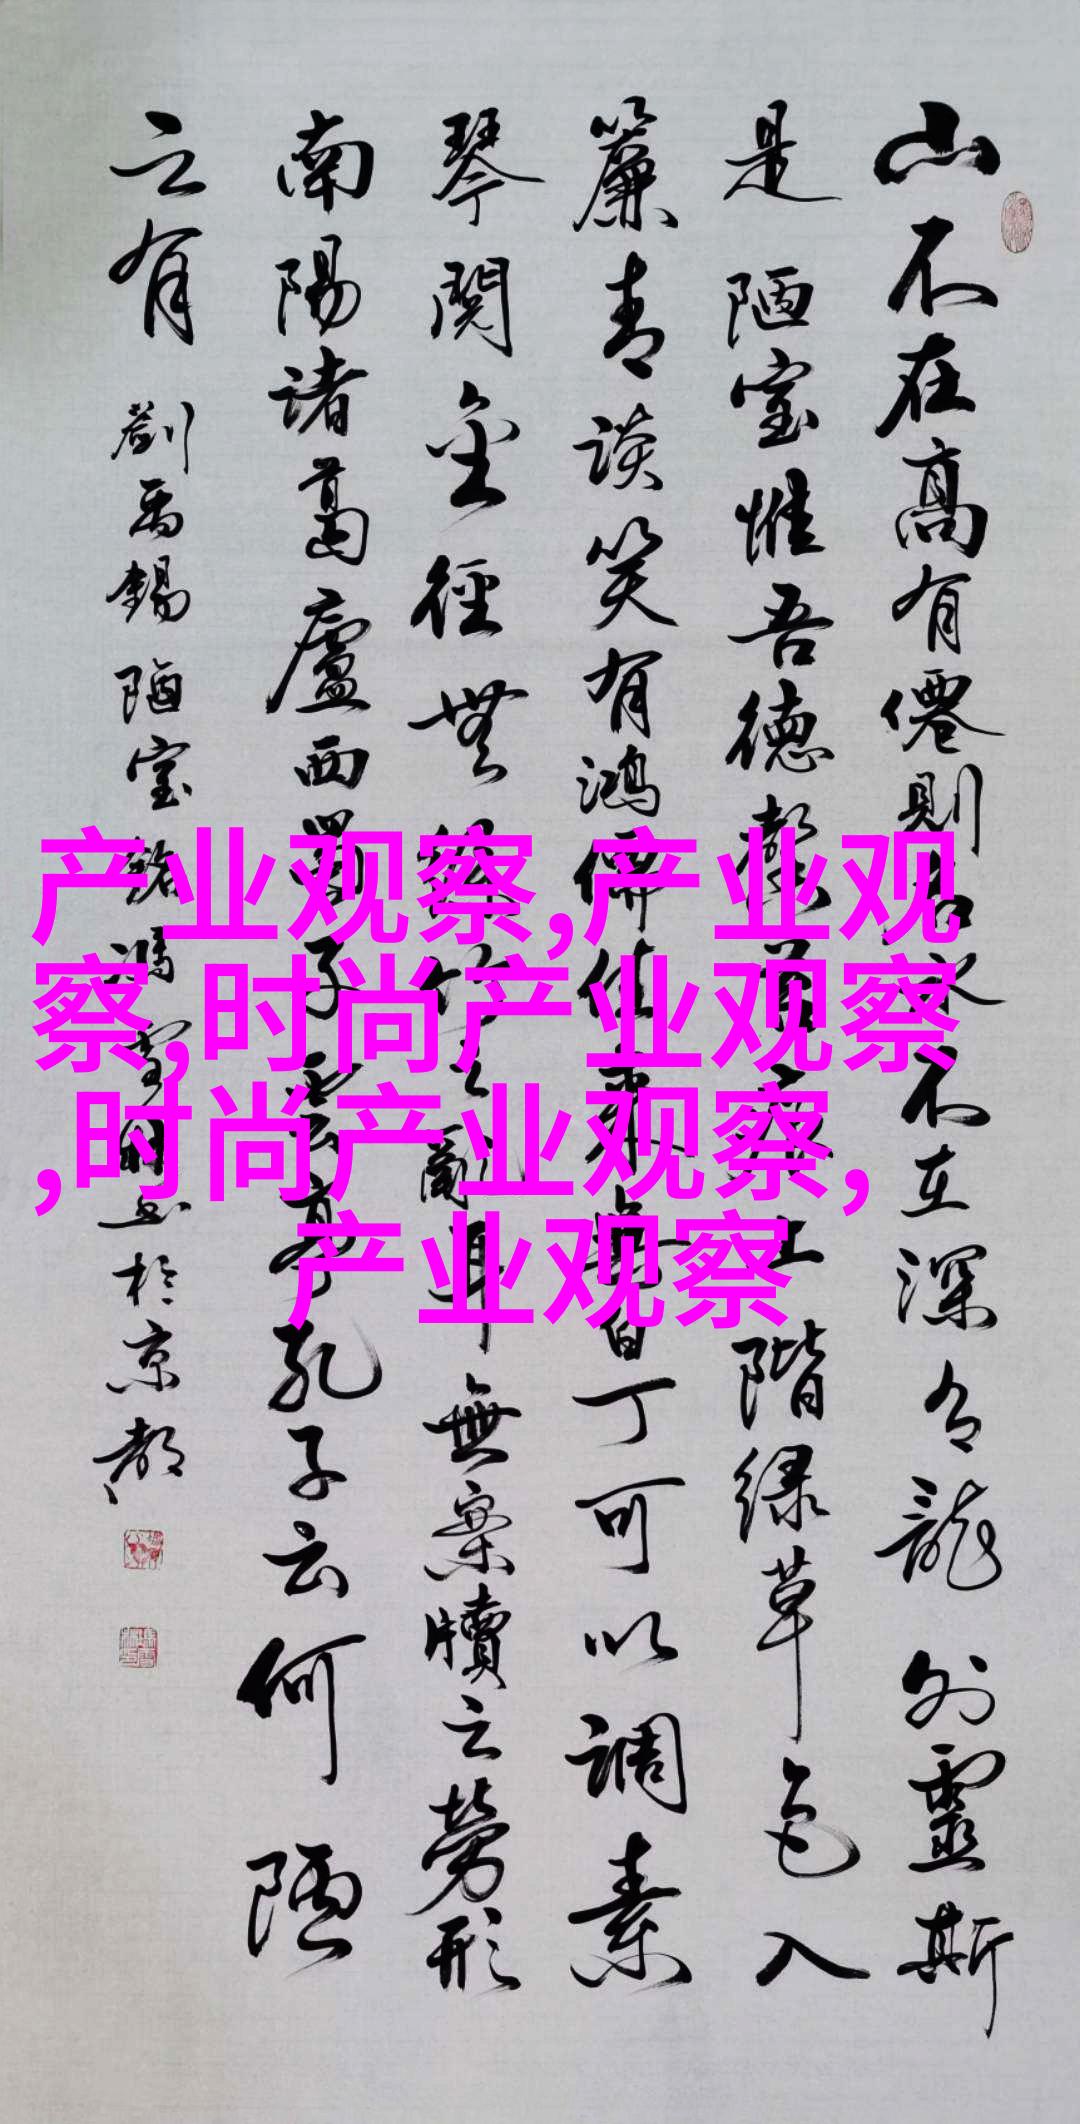 山不在高有僊則名水不在深有龍則靈斯
是陋室惟吾德馨苔痕上階绿草色入
簾青談笑有鴻儒往來無白丁可以調素
琴閱金徑無絲竹之亂耳無案牘之勞形
南陽诸葛廬西蜀子雲亭孔子云何陋
之有 劉禹錫 陋室銘 馮雪明书於京都
产业观察,产业观
察,时尚产业观察
,时尚产业观察,
产业观察